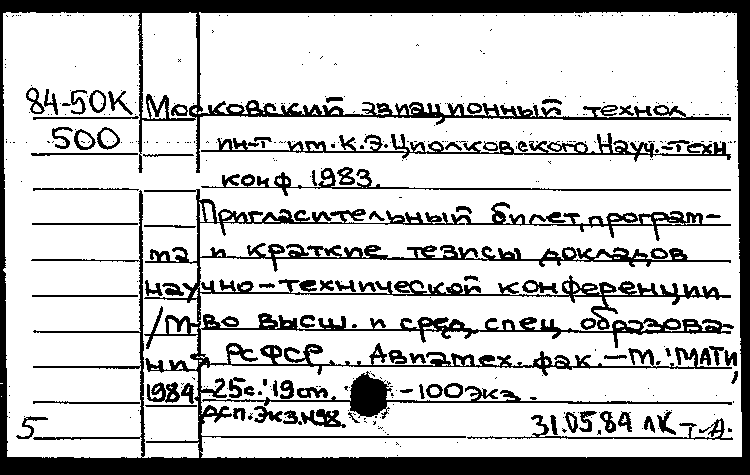 84-50К Московский авиационный технол
500 ин-т им. К.Э.Циолковского. Науч.-техн.
конф. 1983.
Пригласительный билет, програм-
ма и краткие тезисы докладов
научно-технической конференции
/М-во высш. и сред. спец. образова-
ния РСФСР,... Авиамех. фак. — М.: МАТИ,
1984 -25с.; 19 см. -100 экз.
Рег.Экз.№98.
5 31.05.84 ЛК Т.А.